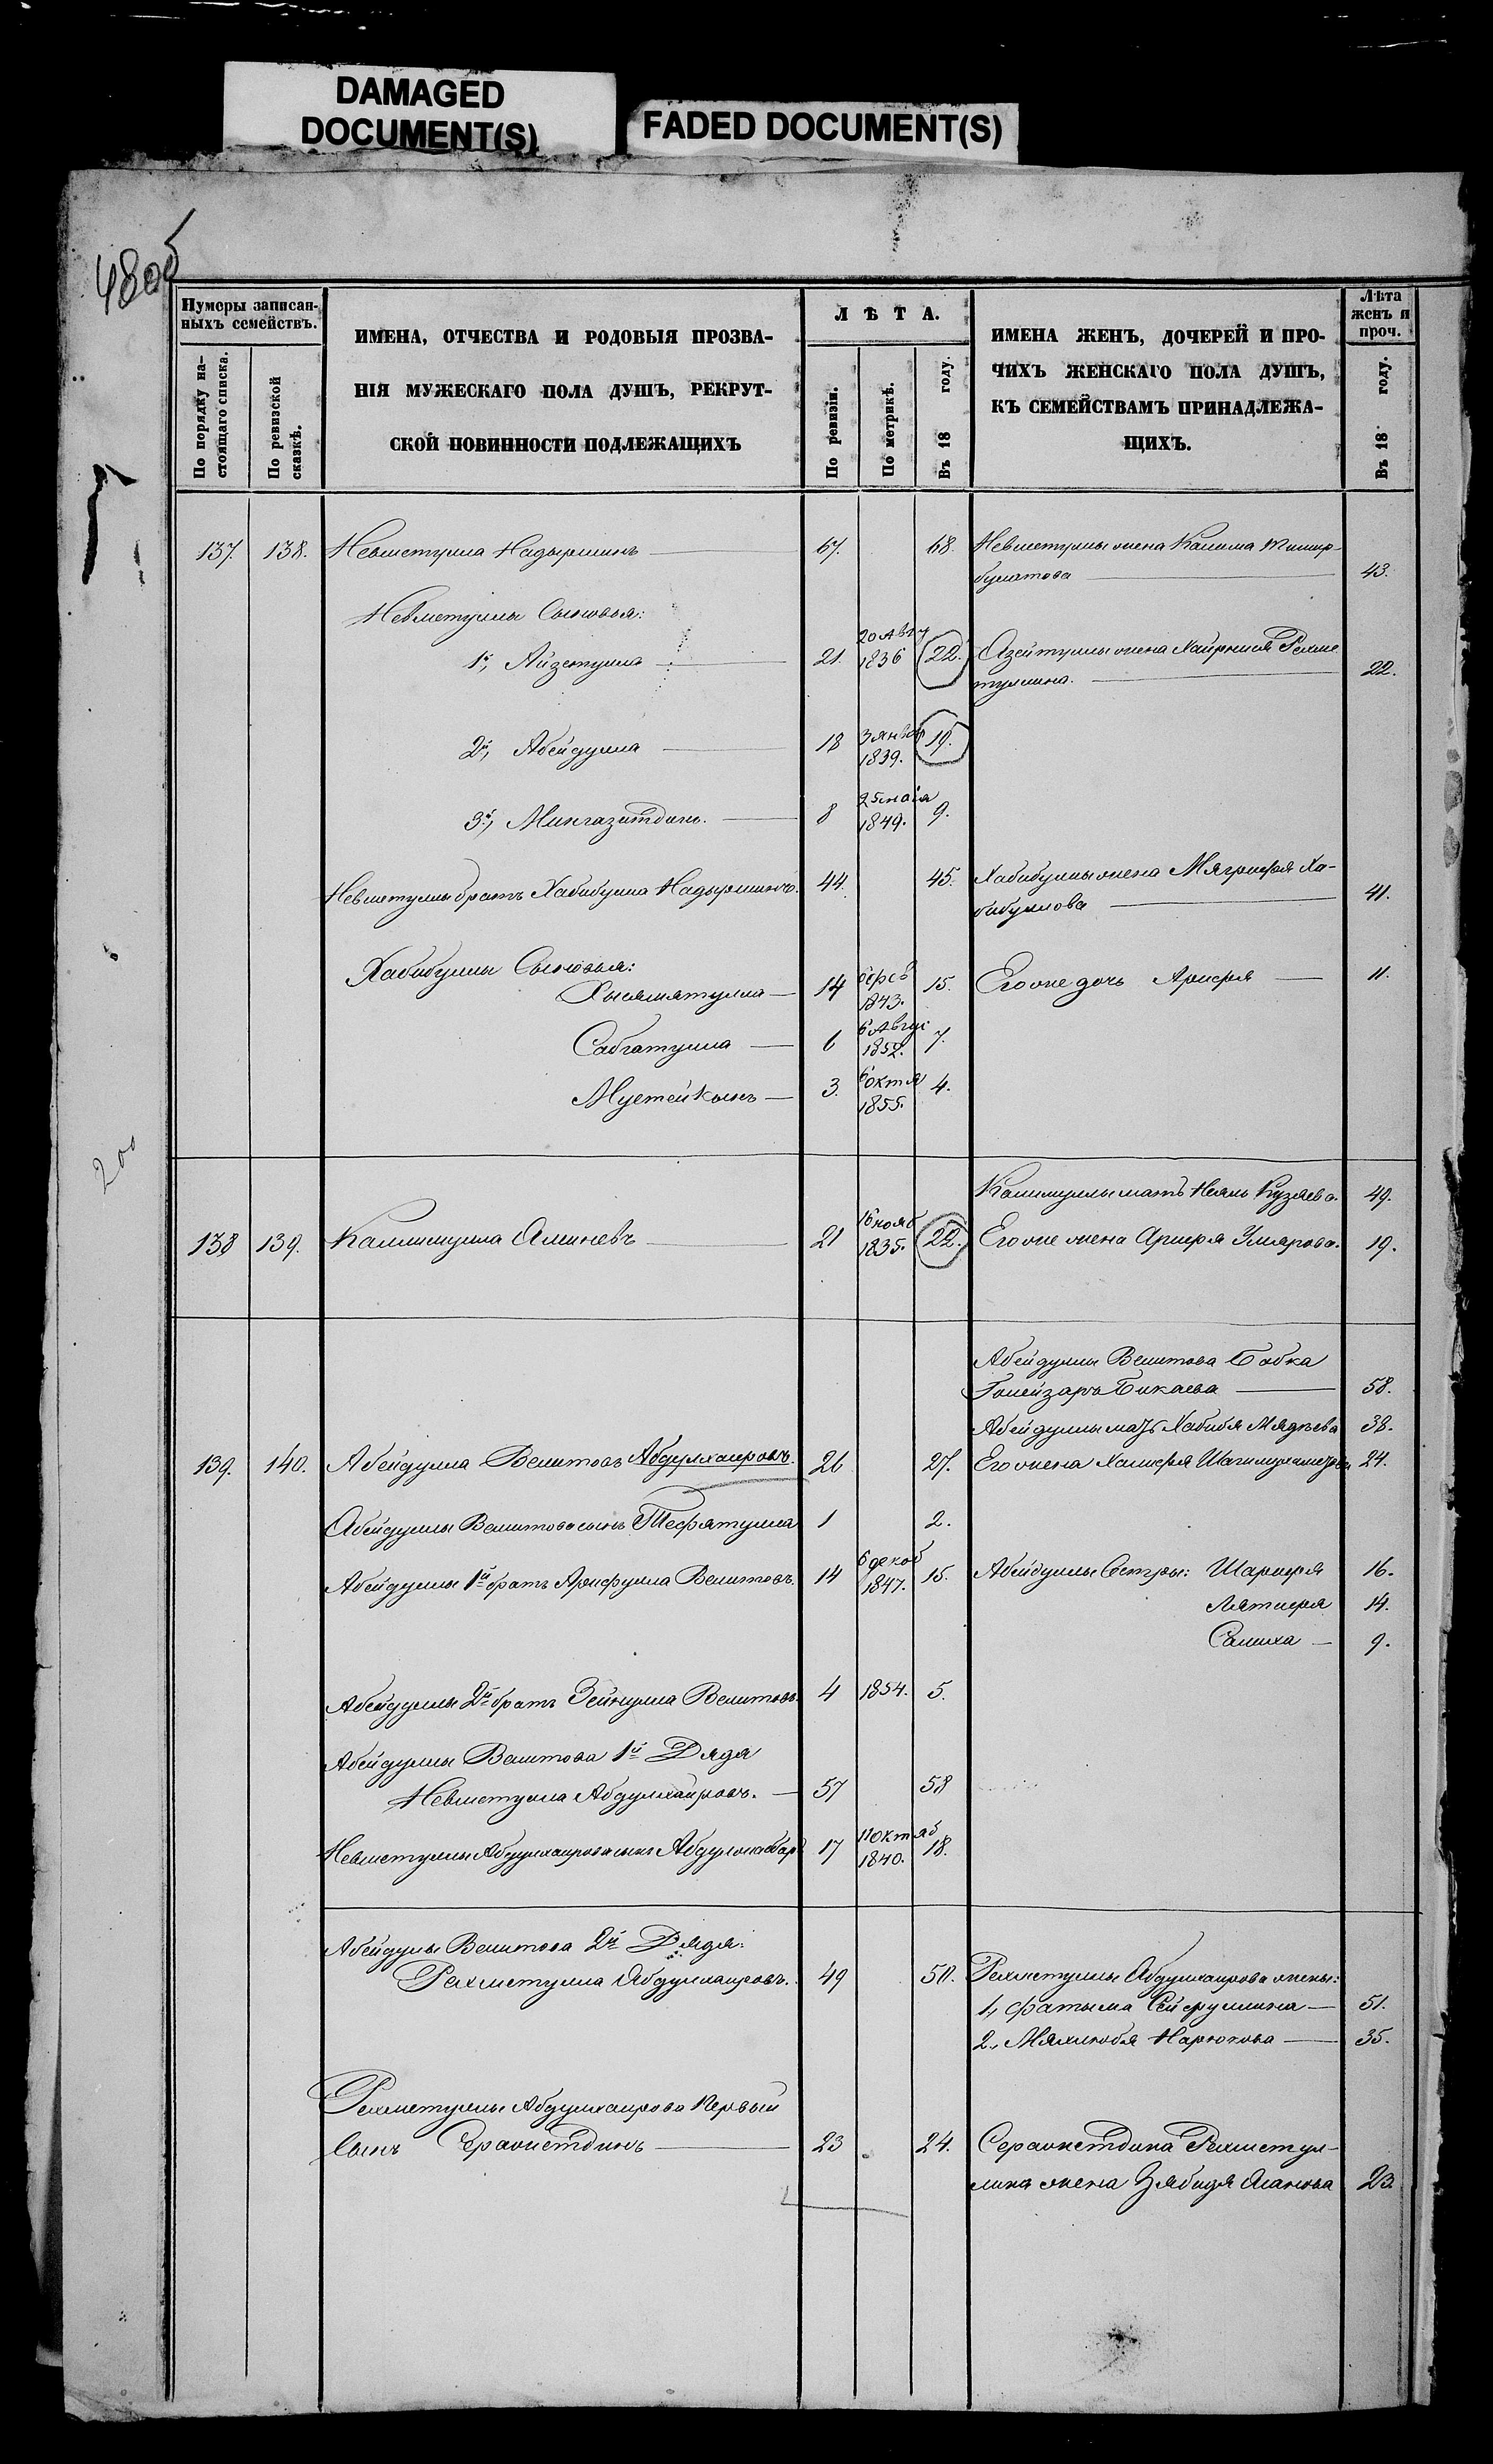 DAMAGED
DOCUMENT(S)
FADED DOCUMENT(S)
480об
Нумеры записан-
ныхъ семействъ.
По порядку на-
стоящаго списка.
По ревизской
сказкѣ.
ИМЕНА, ОТЧЕСТВА И РОДОВЫЯ ПРОЗВА-
НІЯ МУЖЕСКАГО ПОЛА ДУШЪ, РЕКРУТ-
СКОЙ ПОВИННОСТИ ПОДЛЕЖАЩИХЪ
ЛѢТА.
По ревизіи.
По метрикѣ.
Въ 18 году.
ИМЕНА ЖЕНЪ, ДОЧЕРЕЙ И ПРО-
ЧИХЪ ЖЕНСКАГО ПОЛА ДУШЪ,
КЪ СЕМЕЙСТВАМЪ ПРИНАДЛЕЖА-
ЩИХЪ.
Лѣта
женъ и
проч.
Въ 18 году.
137. 138. Невметулла Надыршинъ 67. 68. Невметуллы жена Калима Тимир-
булатова 43.
Невметуллы Сыновья:
1й, Айзетулла 21. 20 Авгу 1836 22. Азейтуллы жена Хайрниса Рахме
туллина. 22.
2й, Абейдулла 18 3 янвр 1839. 19.
3й, Мингазитдинъ. 8 25 маія 1849. 9.
Невметуллы братъ Хабибулла Надыршинъ. 44. 45. Хабибуллы жена Мягрифя Ха-
бибуллова 41.
Хабибуллы Сыновья:
14 1843. 15. Егоже дочь Арифя 11.
Сабгатулла 6 6 Авгус 1852. 7.
3. 6 октя 1855. 4.
200
Калимуллы мать 49.
138 139. Калимулла Аминевъ 21 16 нояб 1835. 22. Егоже жена Арифя Умярова. 19.
Абейдуллы Велитова Бабка
Бикаева 58.
Абейдуллы мать Хабибя 38.
139. 140. Абейдулла Велитовъ Абдулхаировъ. 26 27. Его жена 24.
Абейдуллы Велитова сынъ 1 2.
Абейдуллы 1й братъ Арифулла Велитовъ. 14 6 декаб 1847. 15. Абейдуллы Сестры: Шарифя 16.
Лятифя 14.
Салиха 9.
Абейдуллы 2й братъ Зейнулла Велитовъ. 4 1854. 5.
Абейдуллы Велитова 1й Дядя
Невметулла Абдулхаировъ. 57 58
Невметуллы Абдулхаирова сынъ 17 11 октяб 1840. 18.
Абейдулы Велитова 2й Дядя:
Рахметулла Абдулхаировъ. 49 50. Рахметуллы Абдулхаирова жены:
1, Фатыма Сейфуллина 51.
2, 35.
Рахметуллы Абдулхаирова Первый
Сынъ Серажетдинъ 23 24. Серажетдина Рахметул-
лина жена 23.